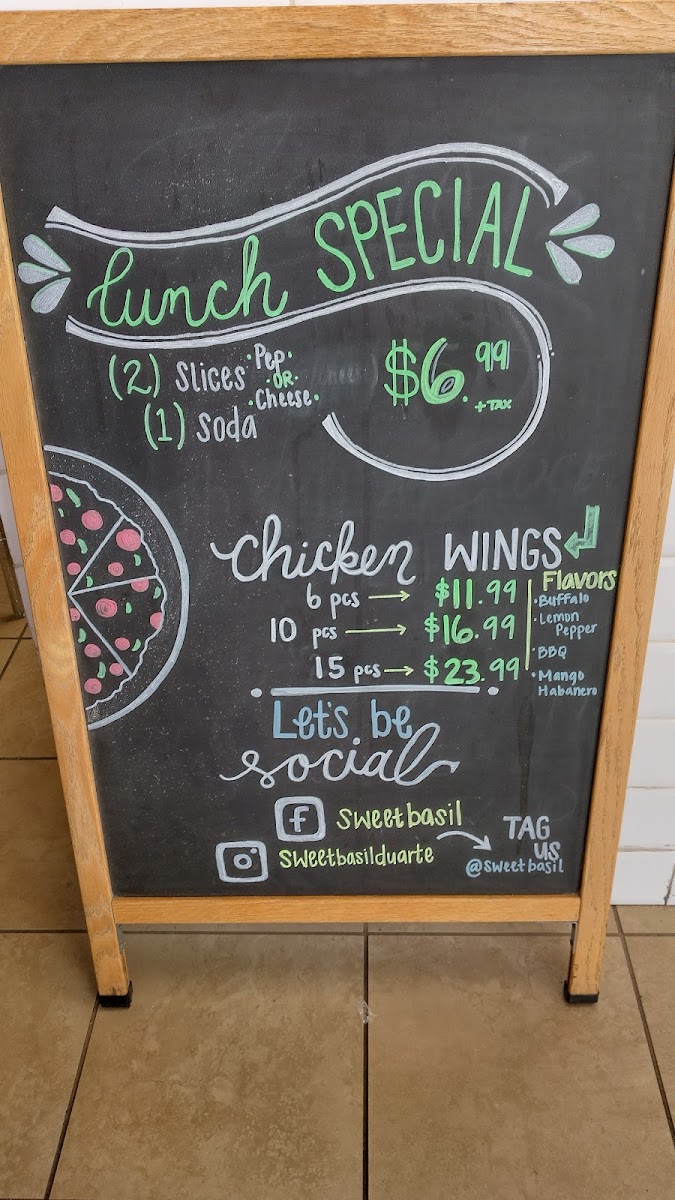 lunch SPECIAL
(2) Slices • Pep • OR • Cheese •
(1) Soda
$6.99
+TAX
chicken WINGS
6 pcs → $11.99
10 pcs → $16.99
15 pcs → $23.99
Flavors
• Buffalo
• Lemon
Pepper
• BBQ
• Mango
Habanero
Let's be
social
f sweetbasil
sweetbasilduarte
TAG
US
@sweetbasil